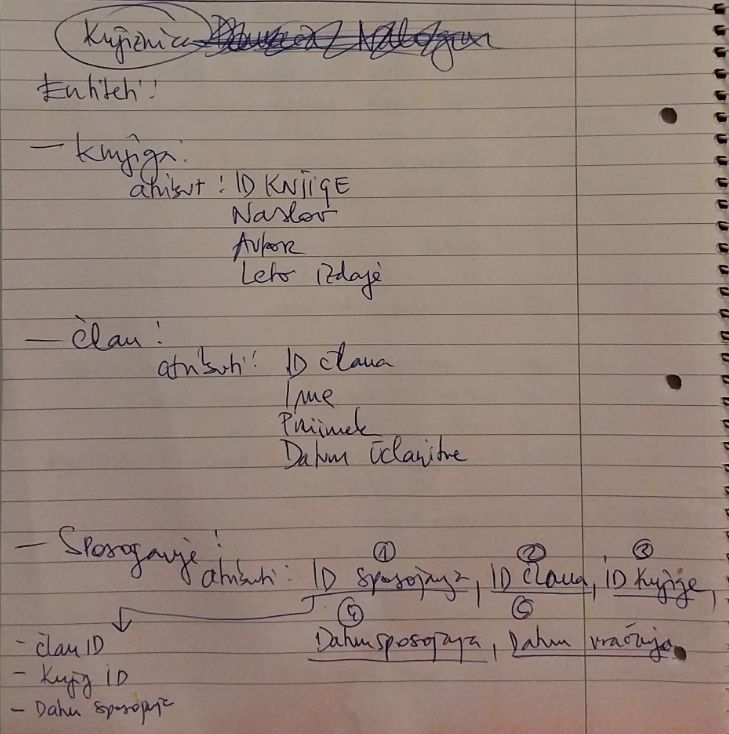 Knjižnica
Entiteti:
- Knjiga:
atribut: ID KNJIGE
Naslov
Avtor
Leto izdaje
- član:
atributi: ID člana
Ime
Priimek
Datum včlanitve
- Sposojanje:
① ② ③
atributi: ID sposojanja, ID člana, ID Knjige,
④ ⑤
Datum sposojanja, Datum vračanja
- član ID
- Knjig ID
- Datum sposojanje